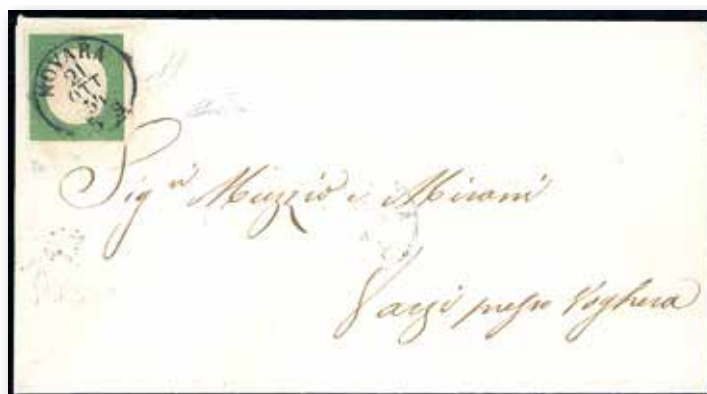 NOVARA
21
OTT
54
Sig.ri Muzzio e Mirani
Varzi presso Voghera